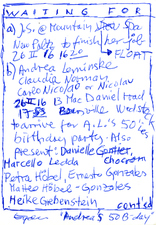 WAITING FOR
a) J.S. @ Mountain View Spa
New Paltz to finish her job
26 II 16 1620 → FLOAT
b) Andrea Lominske
Claudia Norman
Carlo Nicolao or Nicolau
26 II 16 13 Mac Daniel Road
17 Bearsville Woodstock
to arrive for A.L.'s 50ies
birthday party. Also
present: Danielle Gontier,
Marcello Ledda
Petra Höbel, Ernesto Gonzales
Matteo Höbel-Gonzales
Heike Grebenstein
cont'd
Andrea's 50 B-day